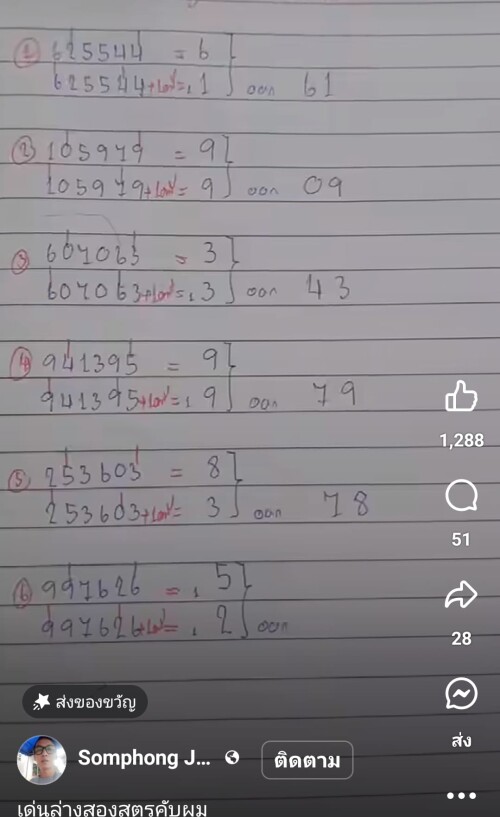 ① 625544 = 6 }
625544+เลข = .1 } ออก 61
② 105979 = 9 }
105979+เลข = 9 } ออก 09
③ 607063 = 3 }
607063+เลข = .3 } ออก 43
④ 941395 = 9 }
941395+เลข = , 9 } ออก 79
⑤ 253603 = 8 }
253603+เลข = 3 } ออก 78
⑥ 997626 = . 5 }
997626+เลข = . 2 } ออก
1,288
51
28
ส่งของขวัญ
ส่ง
Somphong J... ติดตาม
เด่นล่างสองสูตรคับผม